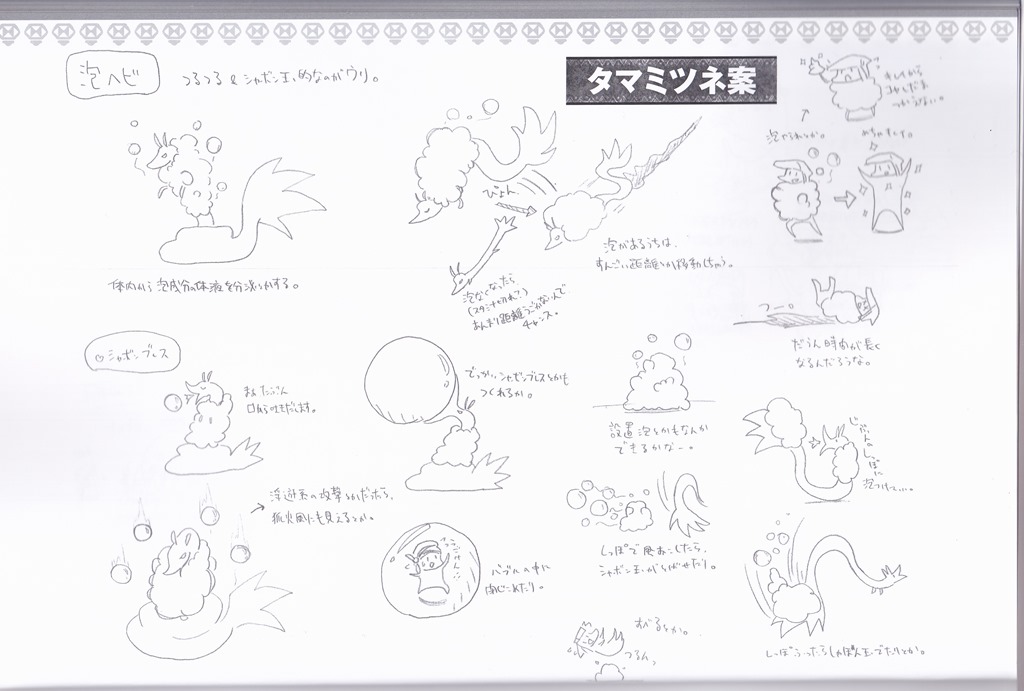 泡ヘビ
つるつる & シャボン玉的なのがウリ。
タマミツネ案
キレイすぎ
泡やられとか。
めちゃキレイ。
体内から泡成分の体液を分泌とかする。
ぴょん
泡があるうちは、
すんごい距離とか移動しちゃう。
泡なくなったら
(スタミナ切れ?)
あんまり距離うごかないんで
チャンス。
つー。
だうん時間が長く
なるんだろうな。
シャボンブレス
まぁたぶん
口から吐きだします。
でっかいシャボンブレスとかも
つくれるか。
設置泡とかもなんか
できるかなー。
じぶんの
しっぽに
泡つけてぃ。
→浮遊系の攻撃とかだったら、
狐火風にも見えるとか。
バブルの中に
閉じこめたり。
しっぽで風おこしたら、
シャボン玉がとばせたり。
すべるとか。
つるん。
しっぽうったらしゃぼん玉でたりとか。